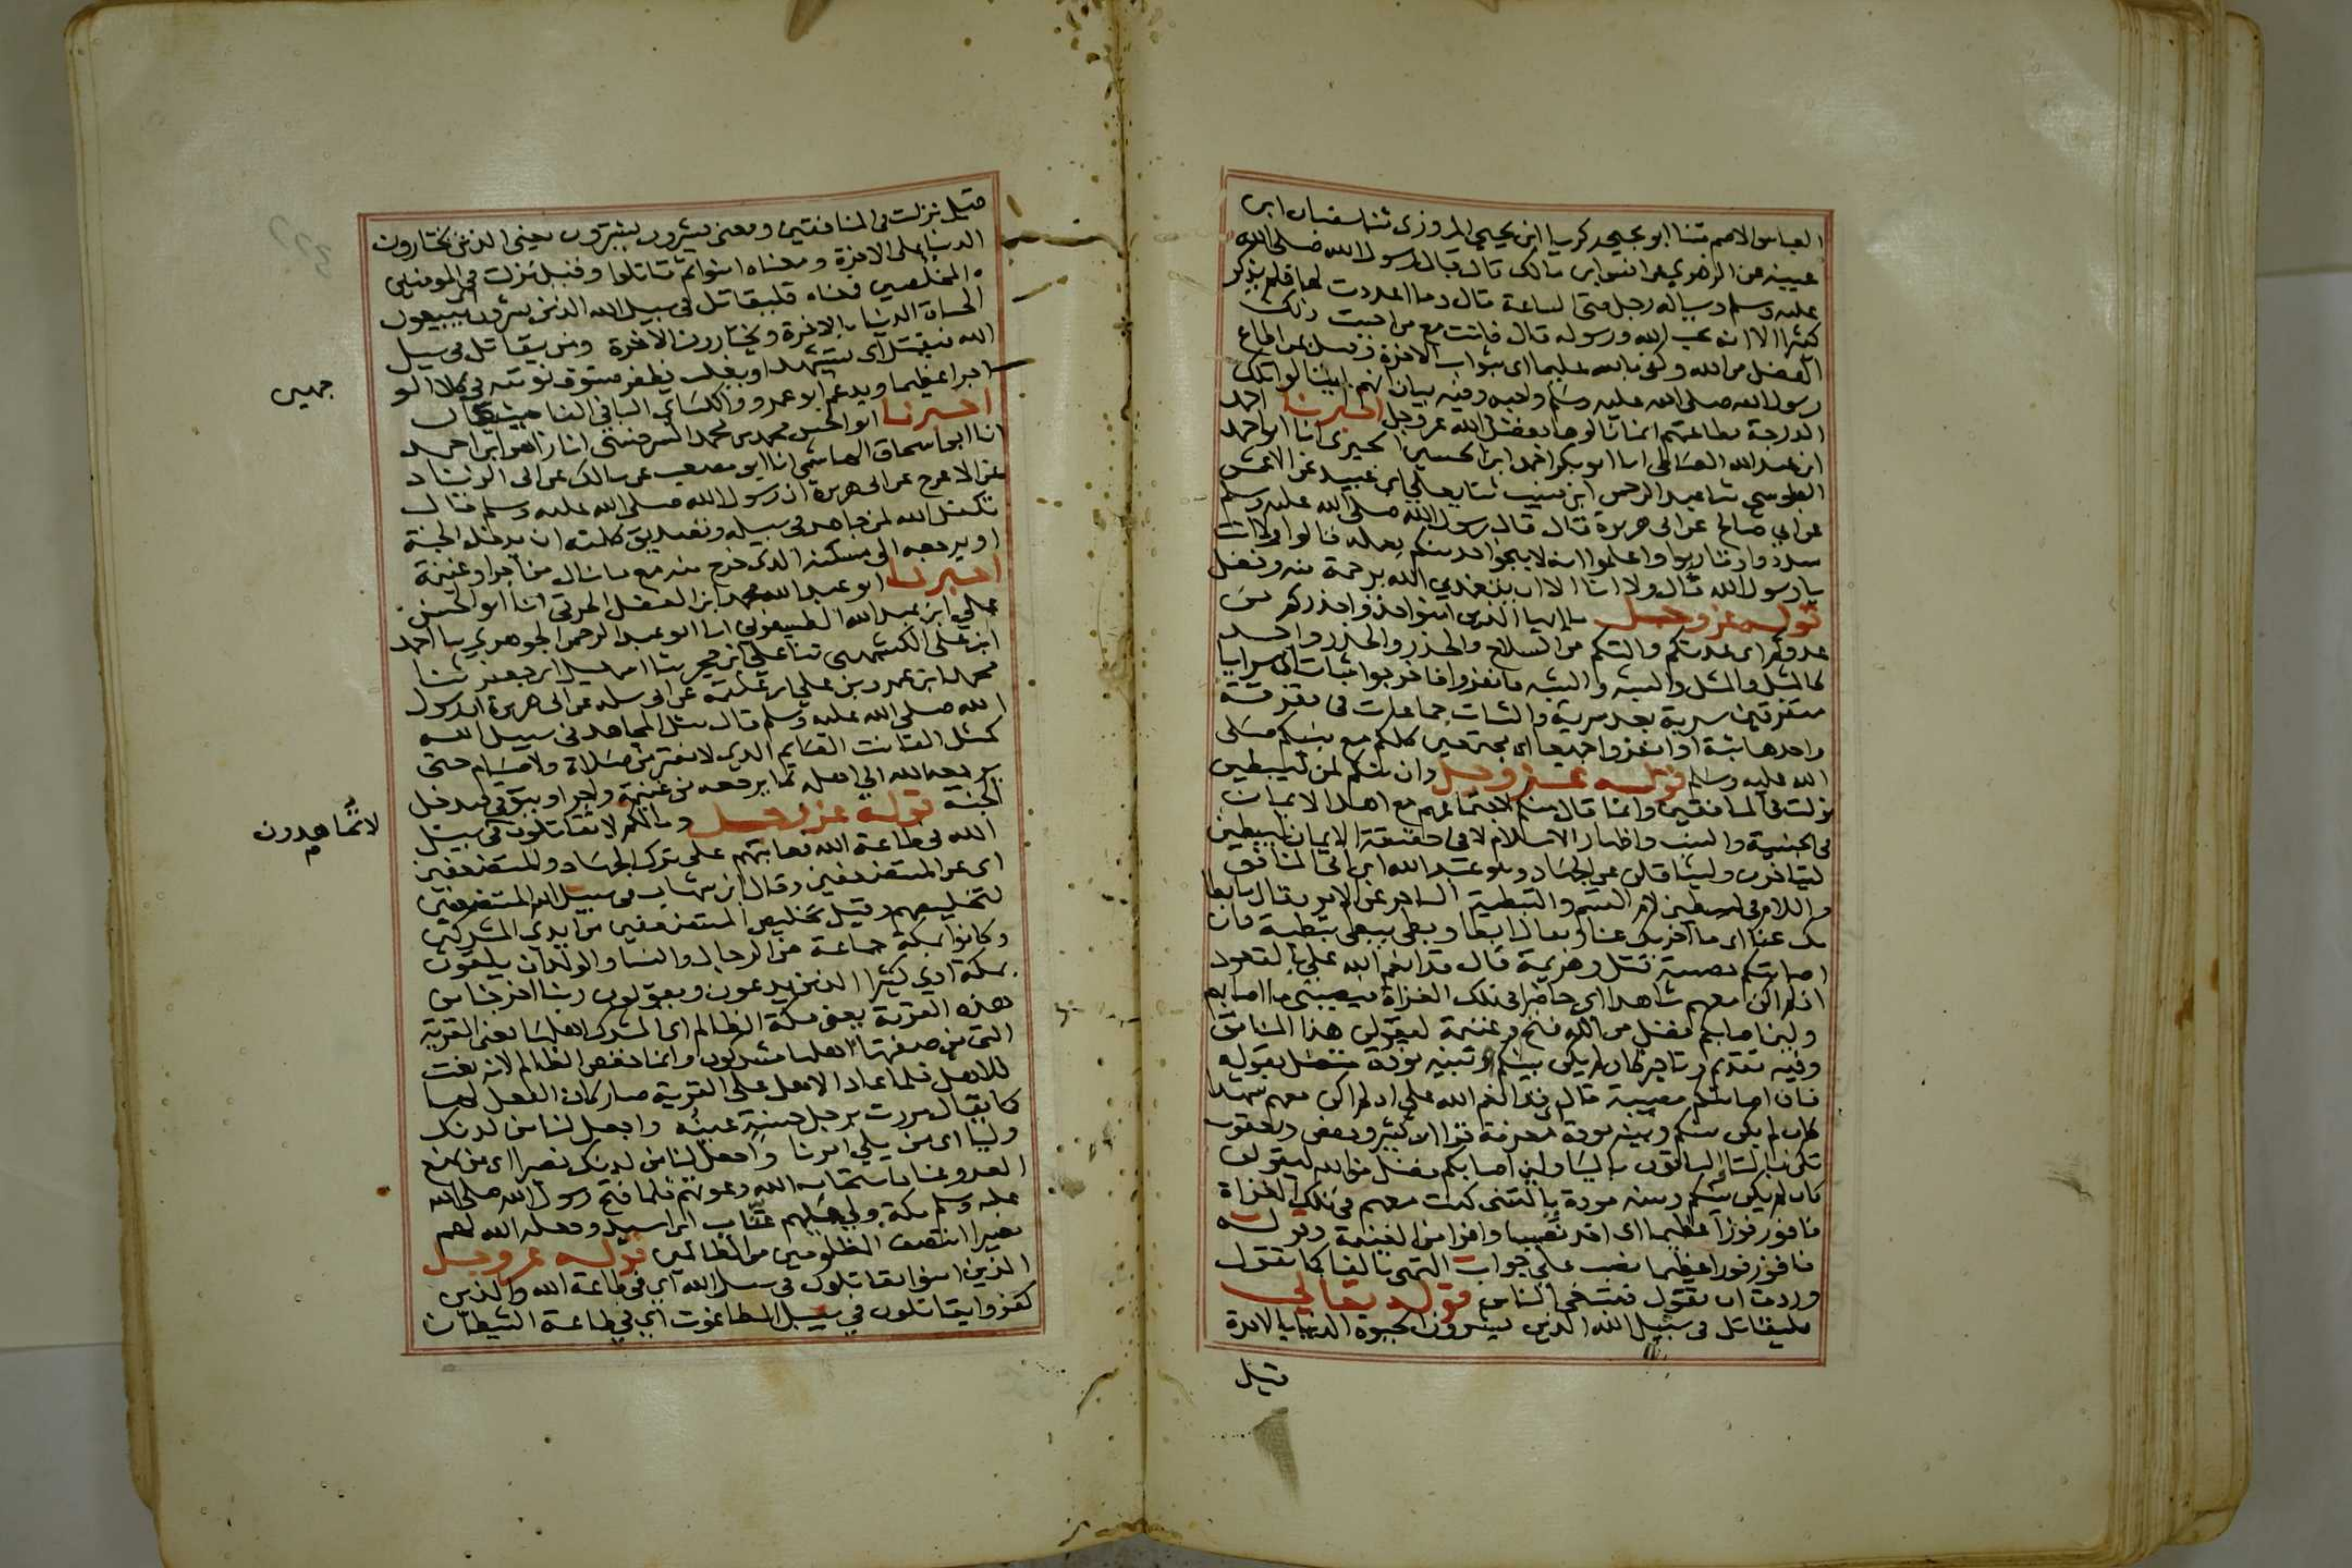 العباس الاصم ثنا ابو يحيى زكريا ابن يحيى المروزى ثنا سفيان ابن
عيينه عن الزهري عن انس ابن مالك قال قال رسول الله صلى الله
عليه وسلم وساله رجل متى الساعة قال وما اعددت لها فلم يذكر
كثيرا الا انه يحب الله ورسوله قال فانت مع من احببت ذلك
الفضل من الله وكفى بالله عليما اى بثواب الاخرة وقيل بمن اطاع
رسول الله صلى الله عليه وسلم واحبه وفيه بيان انهم لم ينالوا تلك
الدرجة بطاعتهم انما نالوها بفضل الله عز وجل اخبرنا احمد
ابن عبد الله الصالحى انا ابو بكر احمد ابن الحسين الحيرى انا ابو احمد
الطوسي ثنا عبد الرحمن ابن منيب ثنا يعلى ابن عبيد عن الاعمش
عن ابي صالح عن ابى هريرة قال قال رسول الله صلى الله عليه وسلم
سددوا وقاربوا واعلموا انه لا ينجوا احد منكم بعمله قالوا ولا انت
يا رسول الله قال ولا انا الا ان يتغمدني الله برحمة منه وفضل
قوله عز وجل يا ايها الذين امنوا خذوا حذركم من
عدوكم اى عدتكم والتكم من السلاح والحذر والحذر واحد
كالمثل والمثل والشبه والشبه فانفروا فاخرجوا ثبات اى سرايا
متفرقين سرية بعد سرية والثبات جماعات فى تفرقة
واحدها ثبة او انفروا جميعا اى مجتمعين كلكم مع نبيكم صلى
الله عليه وسلم قوله عز وجل وان منكم لمن ليبطين
نزلت فى المنافقين وانما قال منكم لاجتماعهم مع اهل الايمان
فى الجنسية والنسب واظهار الاسلام لا فى حقيقة الايمان ليبطين
ليتاخرن وليتثاقلن عن الجهاد وهو عبد الله ابن ابى المنافق
واللام فى ليبطين لام القسم والتبطية التاخر عن الامر يقال ما ابطا
بك عنا اى ما اخرك عنا ويقال ابطا وبطى يبطى تبطية فان
اصابتكم مصيبة قتل وهزيمة قال قد انعم الله على بالقعود
اذ لم اكن معهم شاهدا اى حاضرا فى تلك الغزاة فيصيبنى ما اصابهم
ولين اصابكم فضل من الله فتح وغنيمة ليقولن هذا المنافق
وفيه تقديم وتاخير كان لم يكن بينكم وبينه مودة متصل بقوله
فان اصابتكم مصيبة قال قد انعم الله على اذ لم اكن معهم شهيدا
كان لم يكن بينكم وبينه مودة معرفة قرا ابن كثير وحفص ويعقوب
تكن بالتا الباقون باليا ولين اصابكم فضل من الله ليقولن
كان لم يكن بينكم وبينه مودة يا ليتنى كنت معهم فى تلك الغزاة
فافوز فوزا عظيما اى اخذ نصيبا وافرا من الغنيمة وقوله
فافوز فوزا عظيما نصب على جواب التمنى بالفا كما تقول
وددت ان تقول فتتبعك الناس قوله تعالي
فليقاتل فى سبيل الله الذين يشرون الحيوة الدنيا بالاخرة
قيل
قيل نزلت فى المنافقين ومعنى يشرون يشترون يعنى الذين يختارون
الدنيا على الاخرة ومعناه امنوا ثم قاتلوا وقيل نزلت فى المومنين
المخلصين معناه فليقاتل فى سبيل الله الذين يشرون يبيعون
الحياة الدنيا بالاخرة ويختارون الاخرة ومن يقاتل فى سبيل
الله فيقتل اى يستشهد او يغلب يظفر فسوف نوتيه فى كلا الو
جهين
اجرا عظيما ويدغم ابو عمرو والكساي البا فى الفا حيث كان
اخبرنا ابو الحسن محمد بن محمد السرخسى انا زاهر ابن احمد
انا ابو اسحاق الهاشمى انا ابو مصعب عن مالك عن ابى الزناد
عن الاعرج عن ابى هريرة ان رسول الله صلى الله عليه وسلم قال
تكفل الله لمن جاهد فى سبيله وتصديق كلمته ان يدخله الجنة
او يرجعه الى مسكنه الذى خرج منه مع ما نال من اجر او غنيمة
اخبرنا ابو عبد الله محمد ابن الفضل الخرقي انا ابو الحسن
علي ابن عبد الله الطيسفوني انا ابو عبد الرحمن الجوهري نا احمد
ابن على الكشميهنى ثنا علي ابن حجر ثنا اسمعيل ابن جعفر ثنا
محمد ابن عمرو بن علي ابن علقمة عن ابى سلمه عن ابى هريرة ان رسول
الله صلى الله عليه وسلم قال مثل المجاهد فى سبيل الله
كمثل القانت القايم الذى لا يفتر من صلاة ولا صيام حتى
يرجعه الله الي اهله بما يرجعه من غنيمة واجر او يتوفى فيدخل
الجنة قوله عز وجل وما لكم لا تقاتلون فى سبيل
لا تجاهدون
الله فى طاعة الله يعاتبهم على ترك الجهاد والمستضعفين
اى عن المستضعفين وقال ابن شهاب فى سبيل الله المستضعفين
لتخليصهم وقيل تخليص المستضعفين من ايدى المشركين
وكانوا بمكة جماعة من الرجال والنسا والولدان يلقون
بمكة اذى كثيرا الذين يدعون ويقولون ربنا اخرجنا من
هذه القرية يعنى مكة الظالم اى المشرك اهلها يعنى القرية
التى من صفتها اهلها مشركون وانما خفض الظالم لانه نعت
للاهل فلما عاد الاهل على القرية صار كان الفعل لها
كما يقال مررت برجل حسنة عينه واجعل لنا من لدنك
وليا اى من يلي امرنا واجعل لنا من لدنك نصيرا اى من يمنع
العدو عنا فاستجاب الله دعوتهم فلما فتح رسول الله صلى الله
عليه وسلم مكة ولى عليهم عتاب ابن اسيد وجعله الله لهم
نصيرا انتصف المظلومين من الظالمين قوله عز وجل
الذين امنوا يقاتلون فى سبيل الله اى فى طاعة الله والذين
كفروا يقاتلون في سبيل الطاغوت اي في طاعة الشيطان